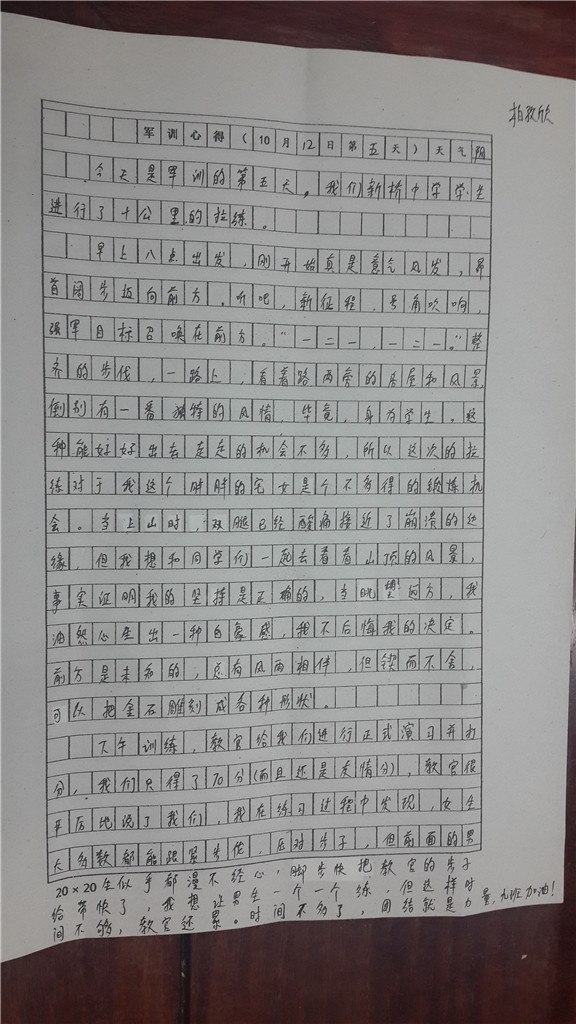 柏孜欣
军训心得(10月12日第五天)天气阴
今天是军训的第五天。我们新桥中学学生
进行了十公里的拉练。
早上八点出发,刚开始真是意气风发,昂
首阔步迈向前方。听吧,新征程,号角吹响,
强军目标召唤在前方。“一二一,一二一。”整
齐的步伐,一路上,看着路两旁的房屋和风景
倒别有一番独特的风情,毕竟,身为学生。这
种能好好出去走走的机会不多,所以这次的拉
练对于我这个胖胖的宅女是个不多得的锻炼机
会。当上山时,双腿已经酸痛接近了崩溃的边
缘,但我想和同学们一起去看看山顶的风景,
事实证明我的坚持是正确的,当眺望远方,我
油然心生出一种自豪感,我不后悔我的决定。
前方是未知的,总有风雨相伴,但锲而不舍,
可以把金石雕刻成各种形状。
下午训练,教官给我们进行正式演习并打
分,我们只得了70分(而且还是友情分),教官很
严厉地说了我们,我在练习过程中发现,女生
大多数都能跟紧步伐,应对步子,但前面的男
20×20生似乎都漫不经心,脚步快把教官的步子
给带快了,我想让男生一个一个练,但这样时
间不够,教官还累。时间不多了,团结就是力量,九班加油!